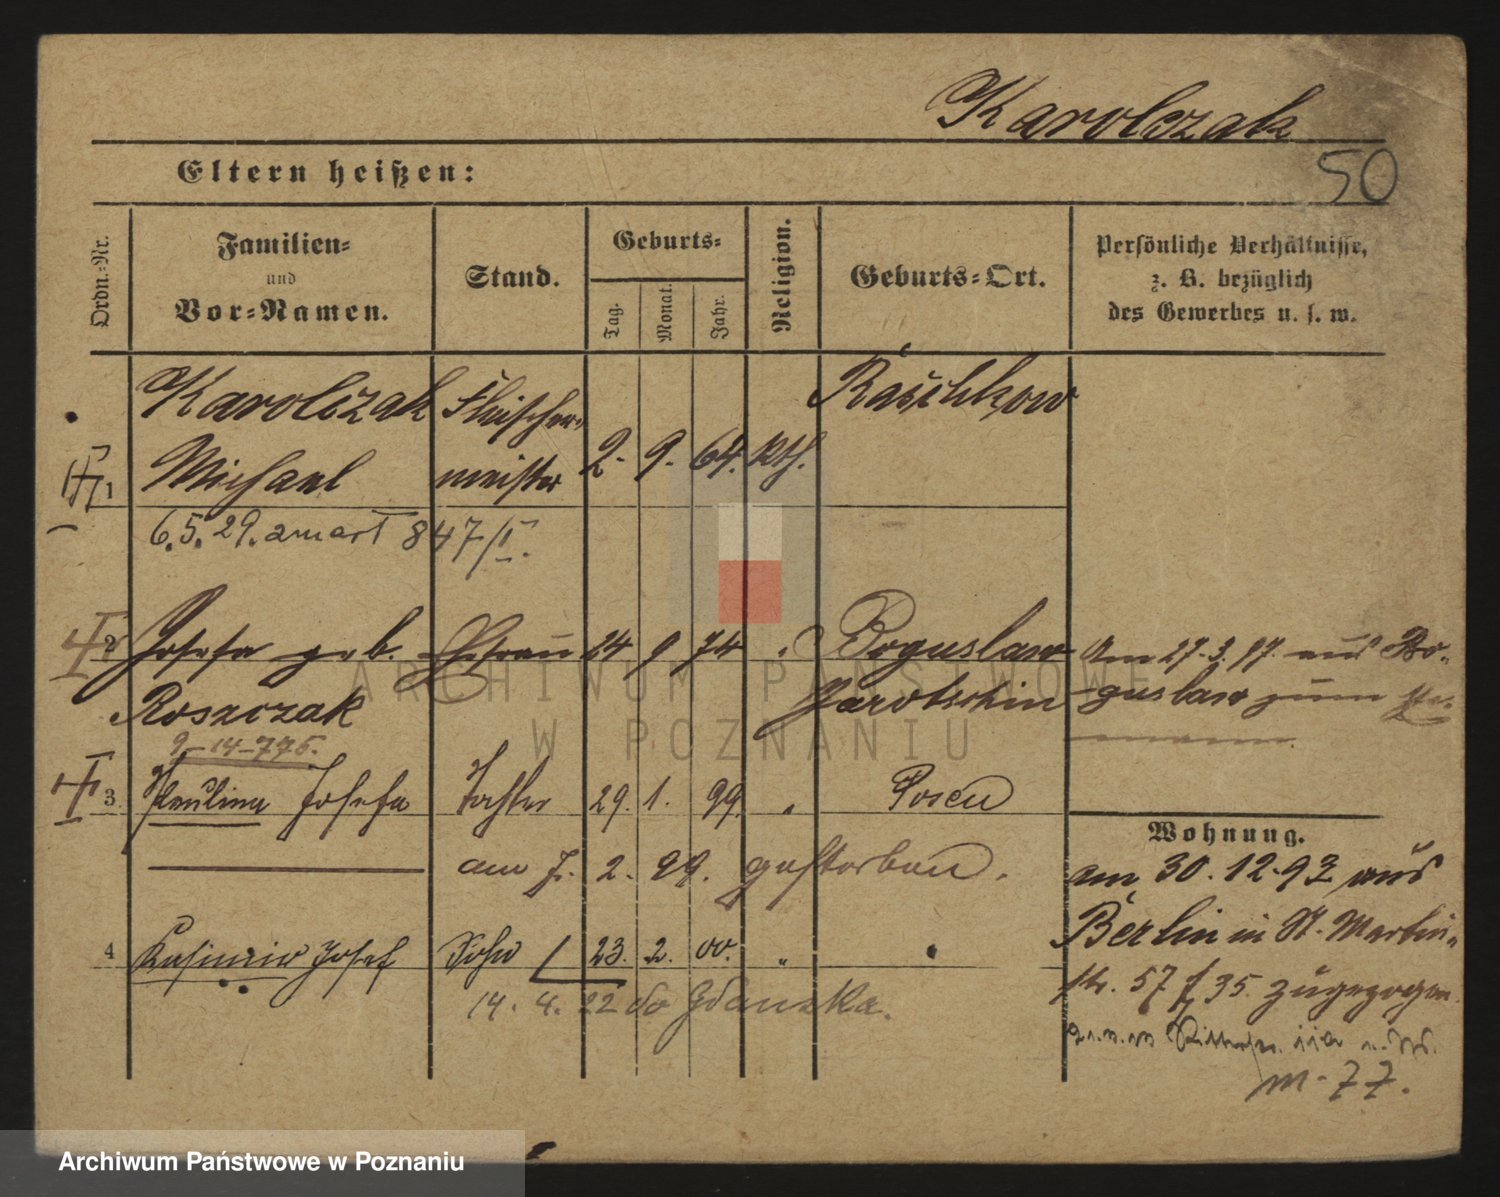 Karolczak
50
Eltern heißen:
Ordn.=Nr.
Familien=
und
Vor=Namen.
Stand.
Geburts=
Tag.
Monat.
Jahr.
Religion.
Geburts=Ort.
Persönliche Verhältnisse,
z. B. bezüglich
des Gewerbes u. s. w.
Karolczak Fleischer= Raschkow
1 Michael meister 2. 9. 64. kth.
6.5.29. zmarł 847/I.
2 Josefa geb. Ehefrau 24 74 " Boguslaw Am 27. 3. 97. aus Bo-
Roszczak Jarotschin guslaw zum
9-14-776. emann.
3. Paulina Josefa Tochter 29. 1. 99. " Posen
Wohnung.
am 7. 2. 99. gestorben. am 30. 12. 93 aus
Berlin in St. Martin-
4 Kasimir Josef Sohn 23. 2. 00. "
str. 57 35. zugezogen
14. 4. 22 do Gdańska.
m. 77.
ARCHIWUM PAŃSTWOWE
W POZNANIU
Archiwum Państwowe w Poznaniu